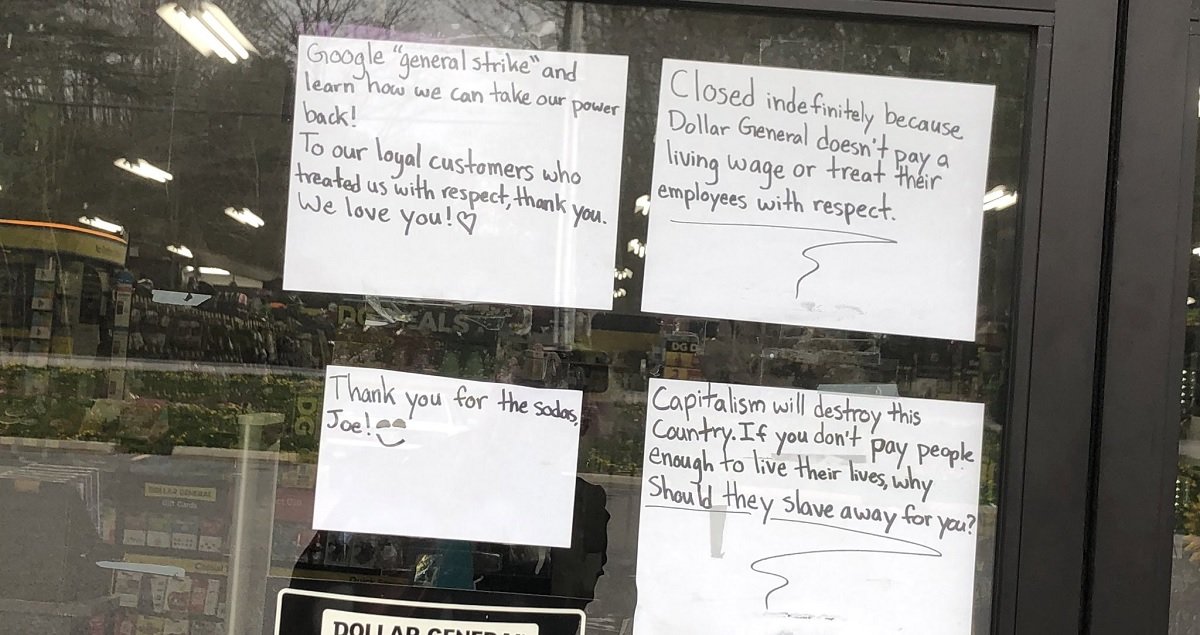 Google "general strike" and
learn how we can take our power
back!
To our loyal customers who
treated us with respect, thank you.
We love you! ♡
Closed indefinitely because
Dollar General doesn't pay a
living wage or treat their
employees with respect.
Thank you for the sodas,
Joe!
Capitalism will destroy this
Country. If you don't pay people
enough to live their lives, why
Should they slave away for you?
DG
DOLLAR GENERAL
Gift Cards
DOLLAR GENERAL